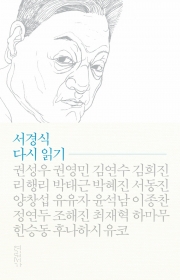 서경식
다시 읽기
권성우 권영민 김연수 김희진
리행리 박태근 박혜진 서동진
양창섭 유유자 윤석남 이종찬
정연두 조해진 최재혁 하마무
한승동 후나하시 유코